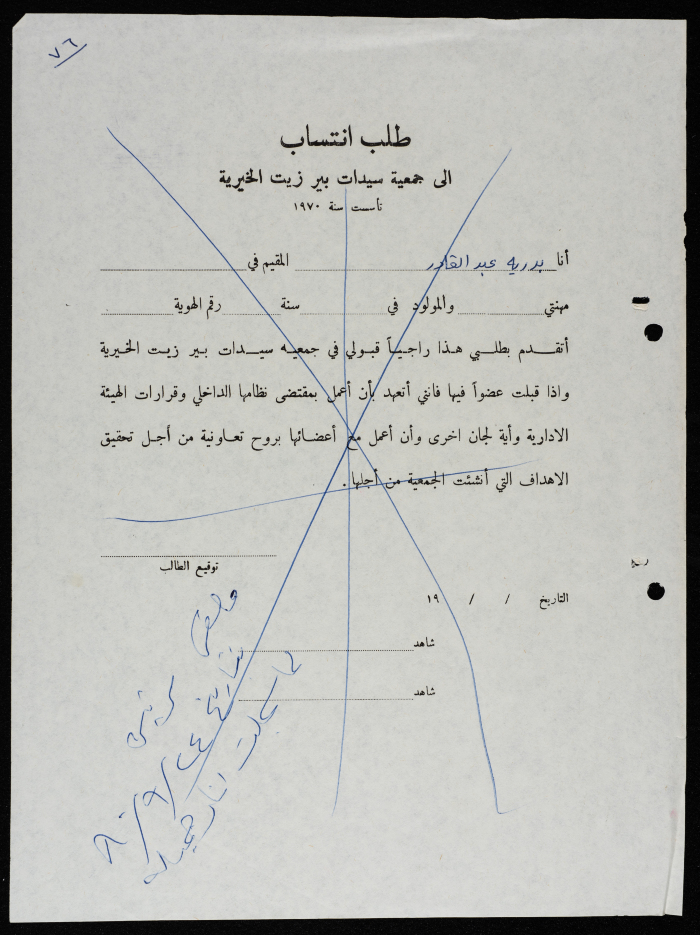 ٧٦
طلب انتساب
الى جمعية سيدات بير زيت الخيرية
تأسست سنة ١٩٧٠
أنا بدريه عبد القادر المقيم في
مهنتي والمولود في سنة رقم الهوية
أتقدم بطلبي هذا راجياً قبولي في جمعيه سيدات بير زيت الخيرية
واذا قبلت عضواً فيها فانني أتعهد بأن أعمل بمقتضى نظامها الداخلي وقرارات الهيئة
الادارية وأية لجان اخرى وأن أعمل مع أعضائها بروح تعاونية من أجل تحقيق
الاهداف التي أنشئت الجمعية من أجلها .
توقيع الطالب
التاريخ / / ١٩
شاهد
شاهد
بتاريخ ٢٤/٩/٨٠